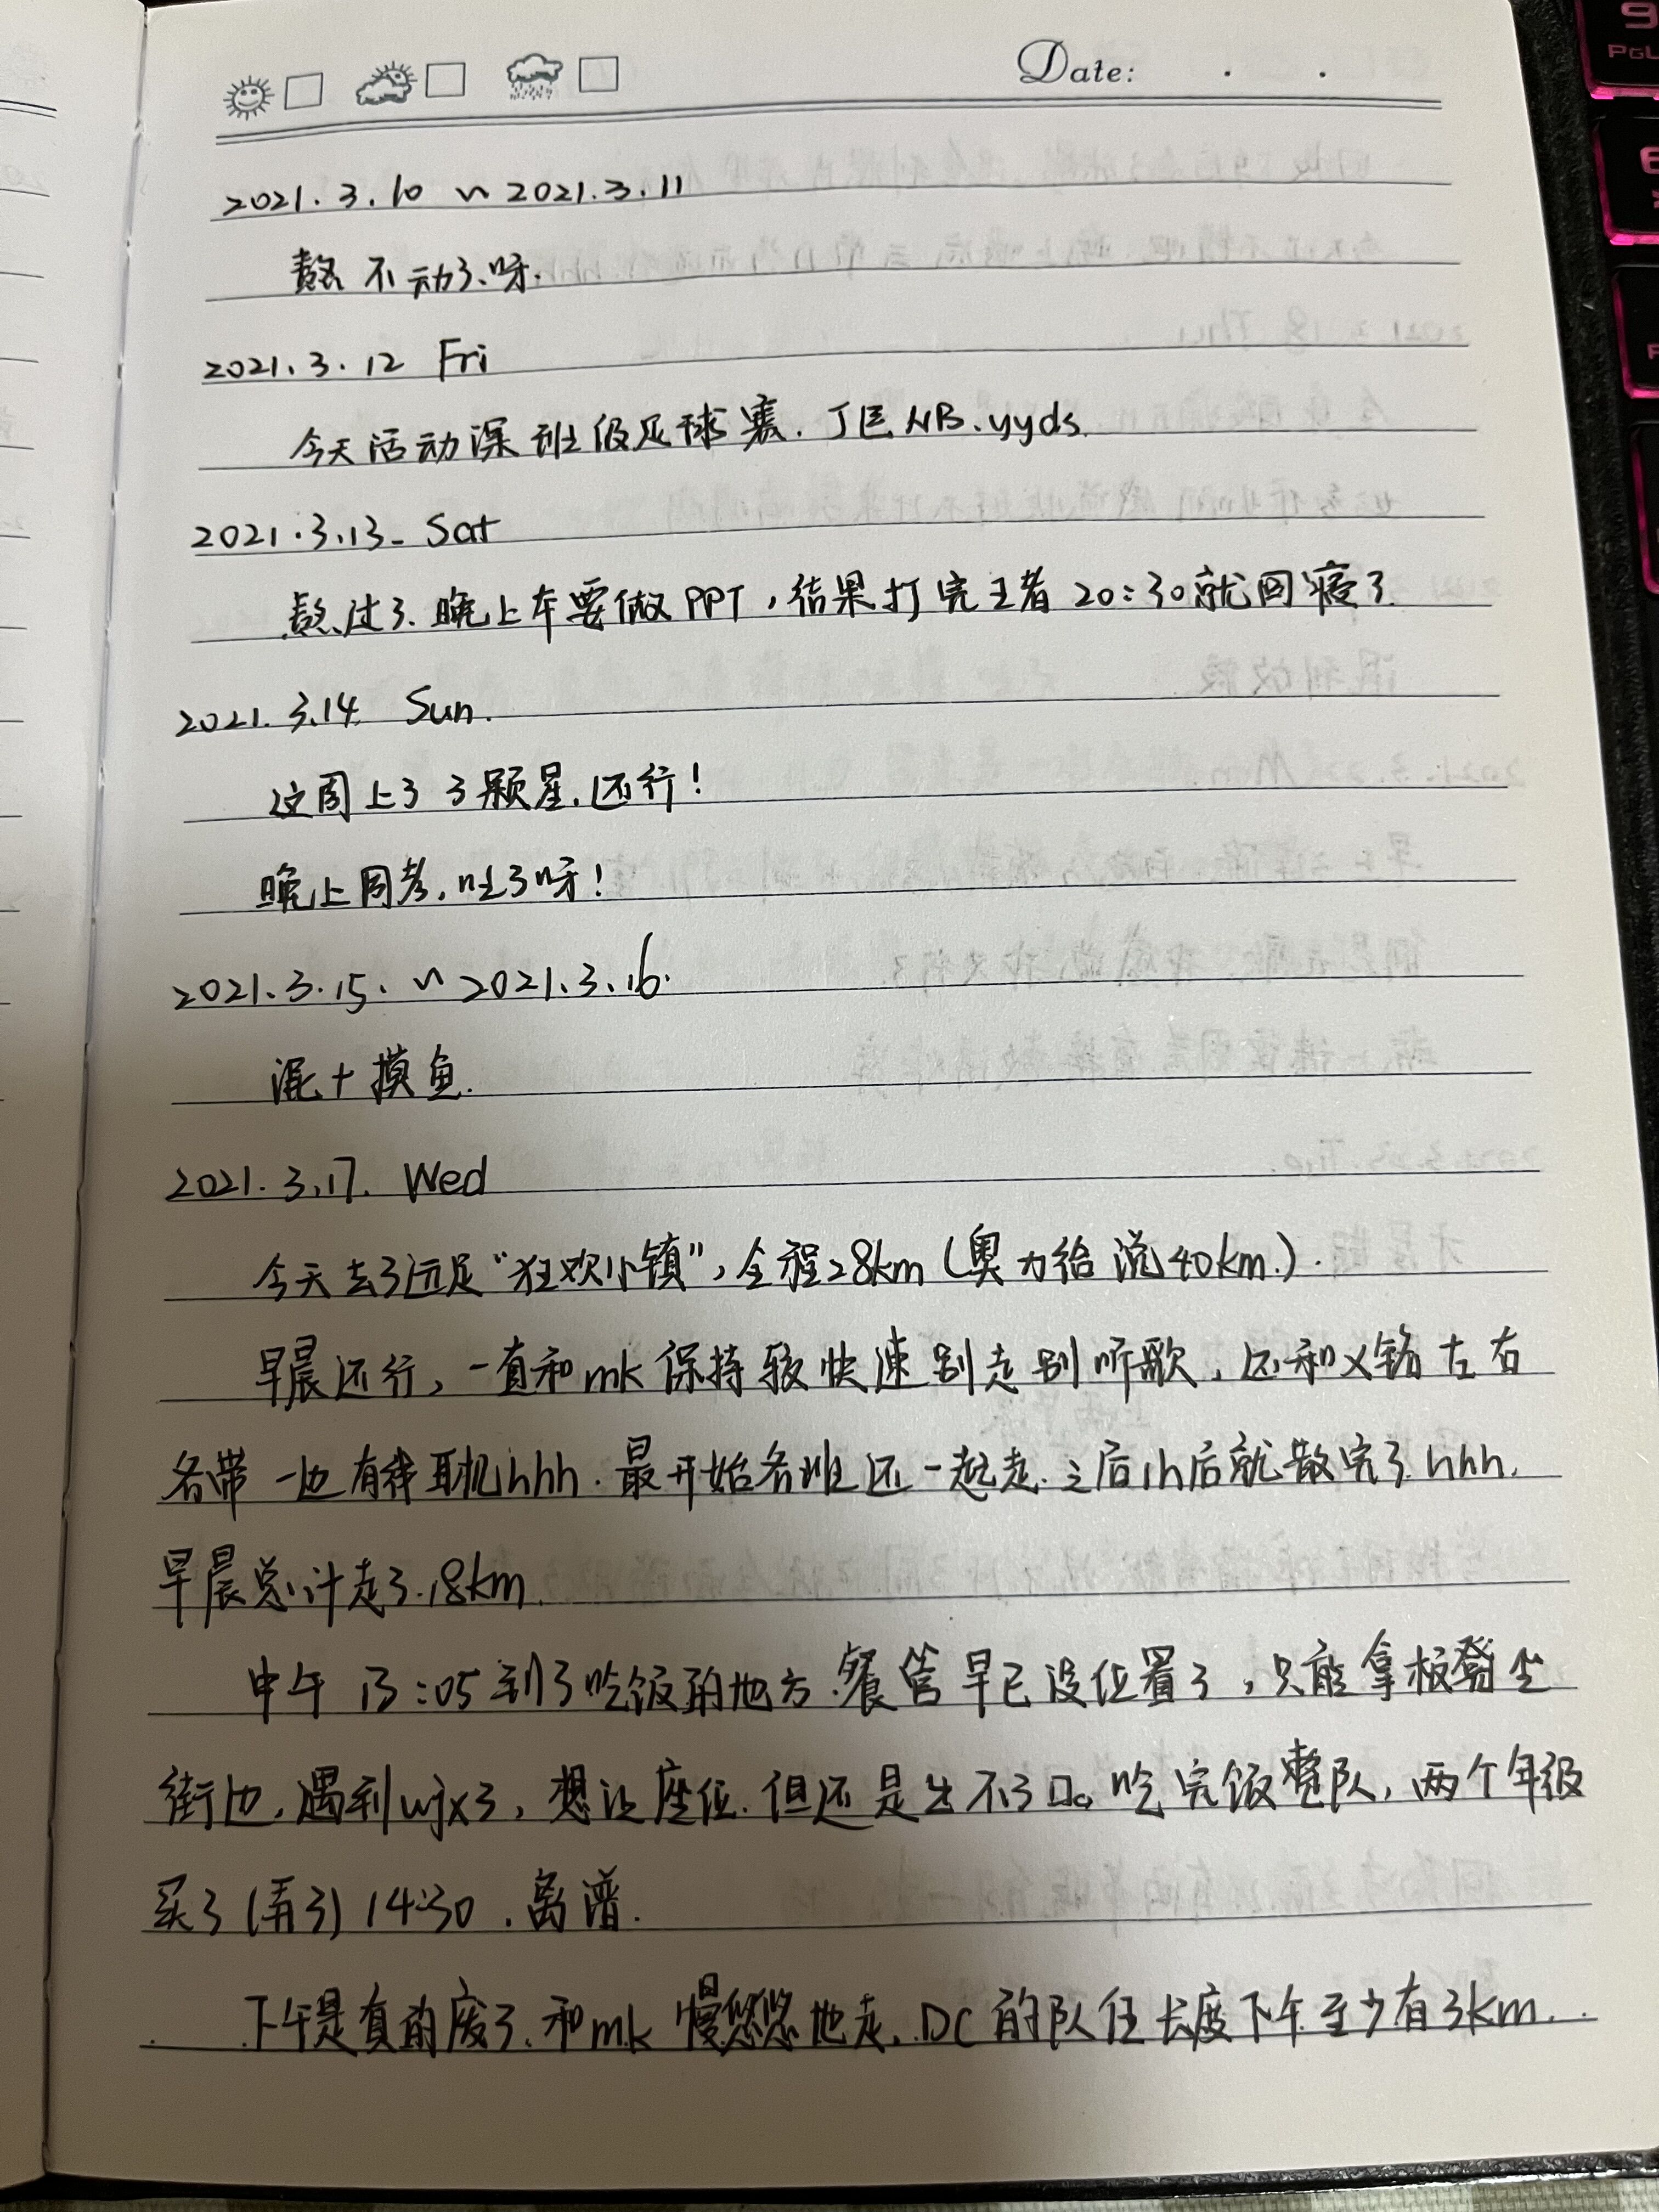 Date: . .
2021.3.10 ~ 2021.3.11
熬不动了呀.
2021.3.12 Fri
今天活动课班级足球赛.丁巨NB.yyds.
2021.3.13. Sat
熬过了.晚上本要做PPT,结果打完王者20:30就回寝了.
2021.3.14. Sun.
这周上了3颗星.还行!
晚上周考.吐了呀!
2021.3.15. ~ 2021.3.16.
混+摸鱼.
2021.3.17. Wed
今天去了远足“狂欢小镇”,全程28km(奥力给说40km.).
早晨还行,一直和mk保持较快速别走别听歌,还和义铭左右
各带一边有线耳机hhh.最开始各班还一起走.之后1h后就散完了.hhh.
早晨总计走了.18km.
中午13:05到了吃饭的地方.餐馆早已没位置了,只能拿板凳坐
街边.遇到wjx了,想让座位.但还是出不了口。吃完饭整队,两个年级
买了(弄了)14:30.离谱.
下午是真的废了.和mk慢悠悠地走.DC的队伍长度下午至少有3km.
9
PGU
6